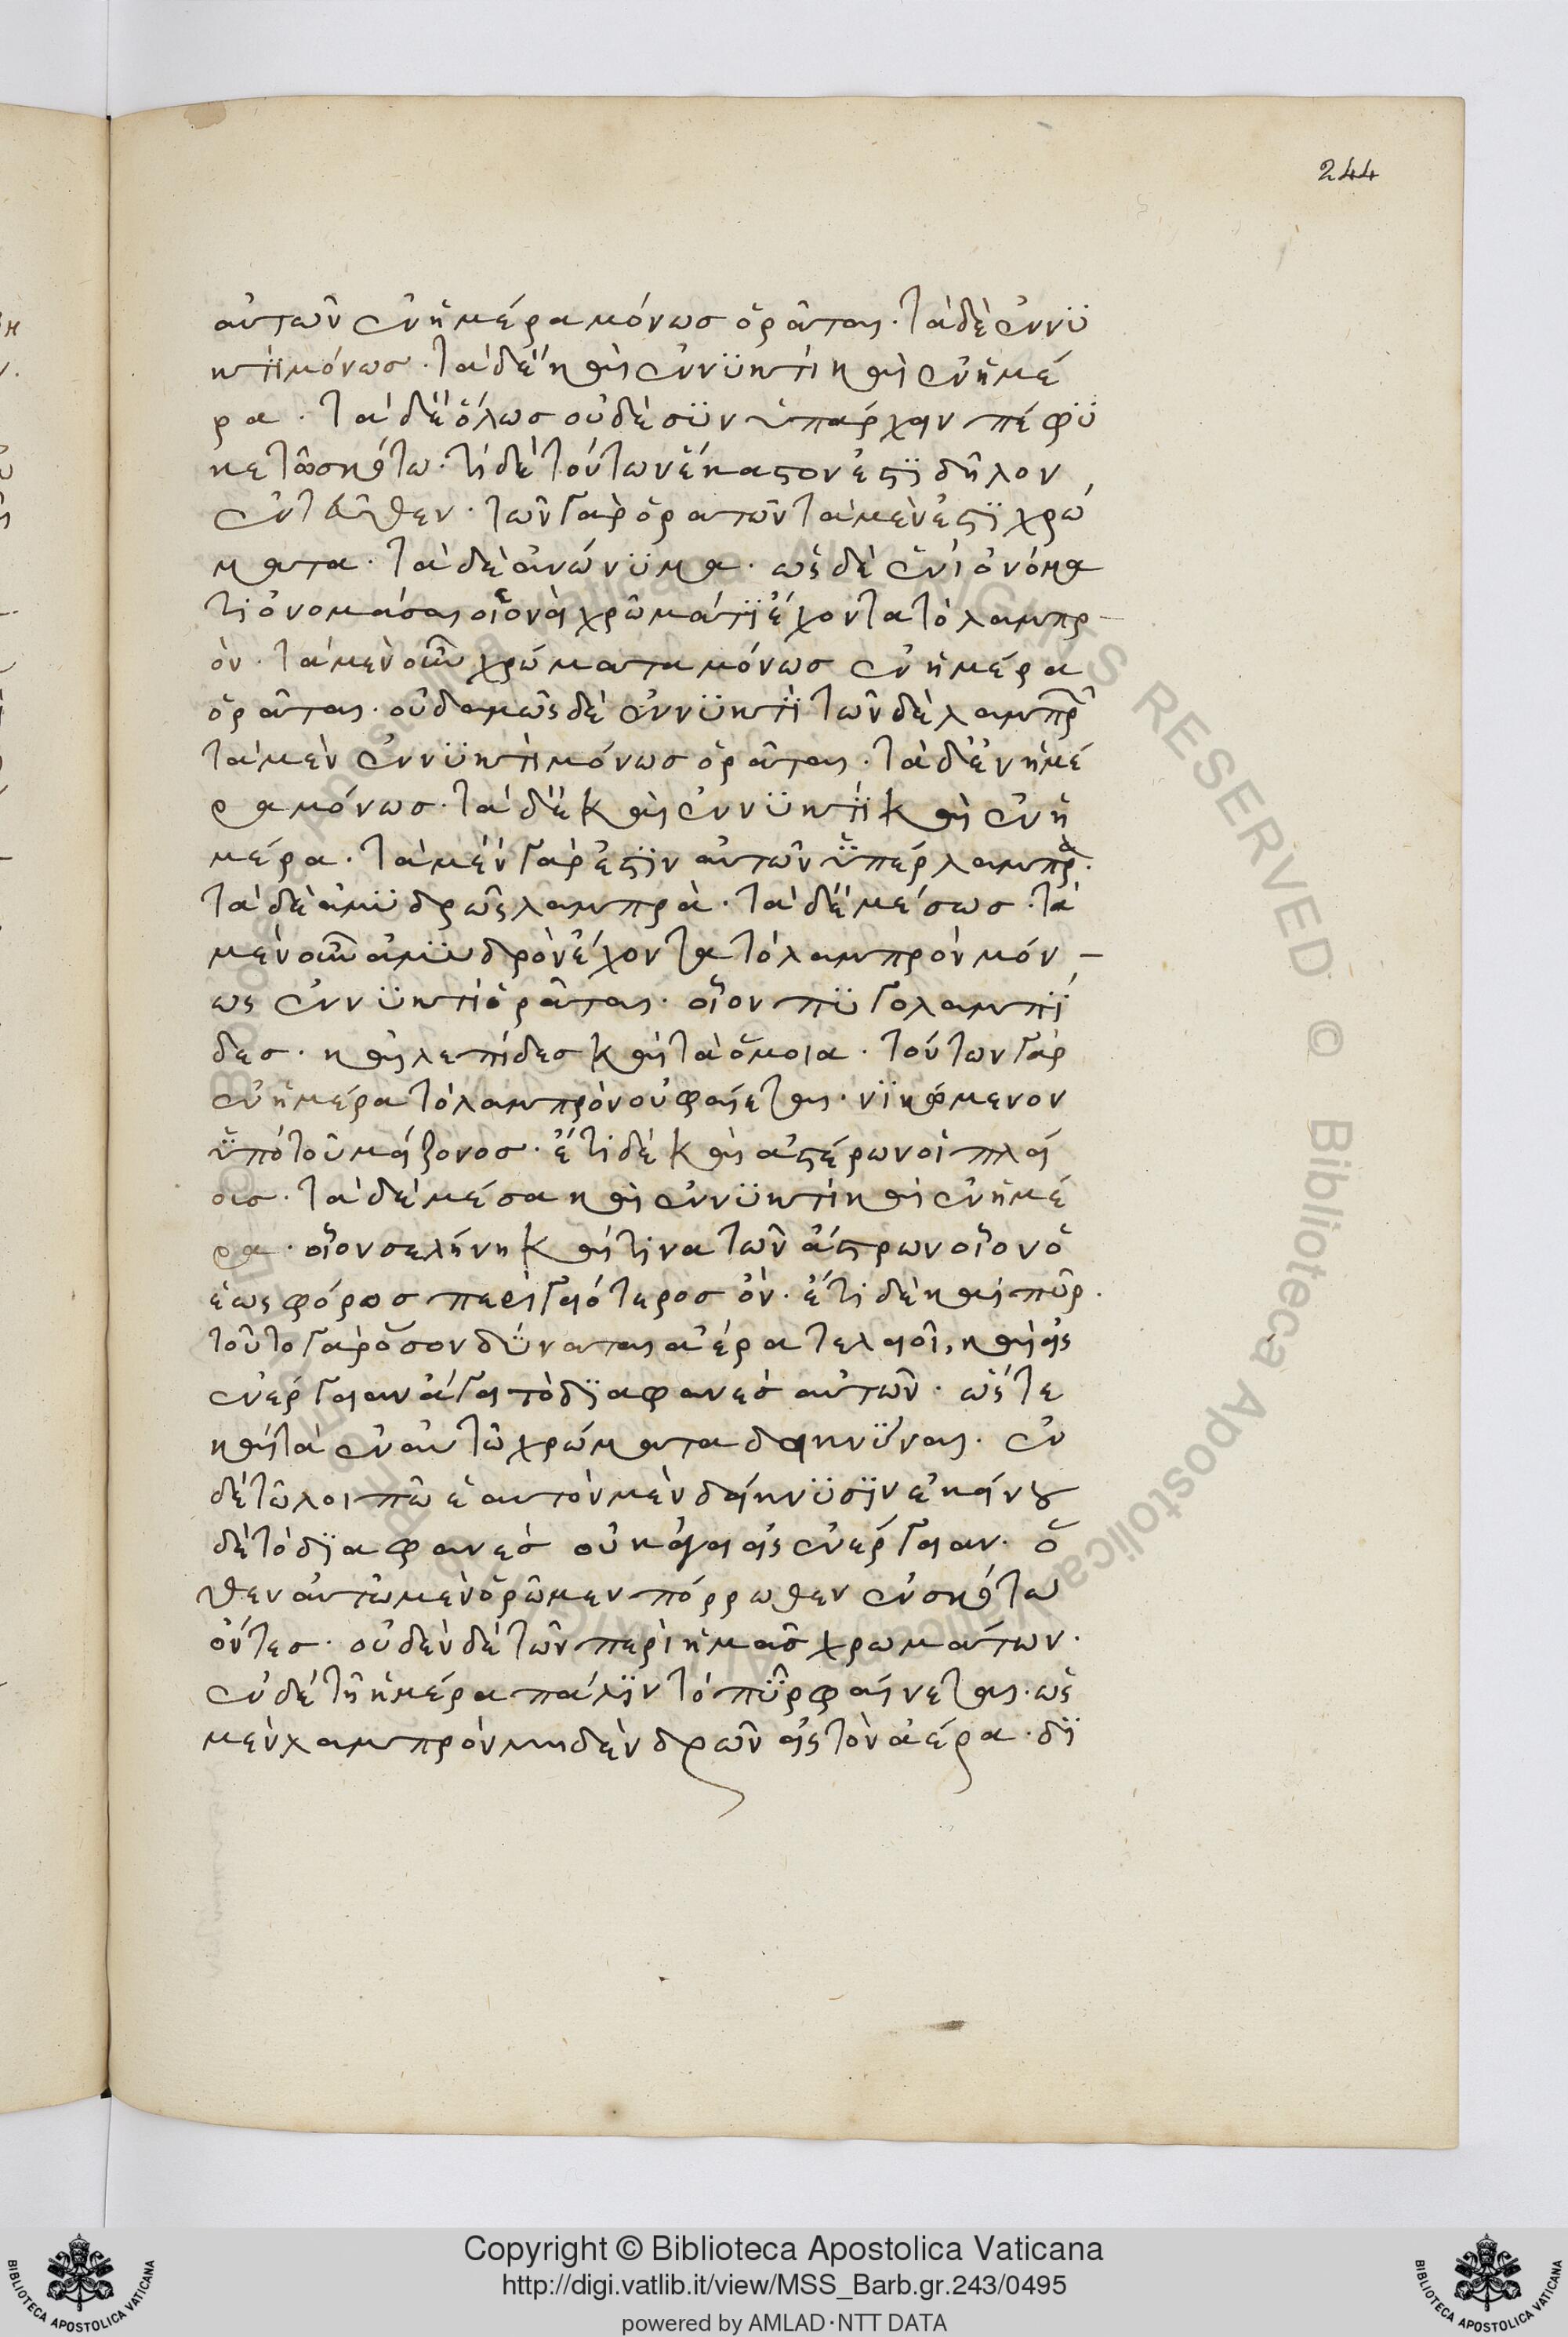 244
αὐτῶν ἐν ἡμέρα μόνωσ ὁρᾶται· τὰ δὲ ἐν νϋ
κτὶ μόνωσ· τὰ δὲ καὶ ἐν νϋκτὶ καὶ ἐν ἡμέ
ρα· τὰ δὲ ὅλωσ οὐδὲ σϋνυπάρχειν πέφϋ
κε τῶ σκότω· τί δὲ τούτων ἕκαστον ἐστϊ δῆλον
ἐντεῦθεν· τῶν γὰρ ὁρατῶν τὰ μὲν ἐστϊ χρώ
ματα· τὰ δὲ ἀνώνϋμα· ὡς δὲ ἑνὶ ὀνόμα
τι ὀνομάσαι οἷον εἰ χρώματϊ ἔχοντα τὸ λαμπρ
όν· τὰ μὲν οὖν χρώματα μόνωσ ἐν ἡμέρα
ὁρᾶται· οὐδαμῶς δὲ ἐν νϋκτὶ τῶν δὲ λαμπρῶν
τὰ μὲν ἐν νϋκτὶ μόνωσ ὁρᾶται· τὰ δ' ἐν ἡμέ
ρα μόνωσ· τὰ δὲ καὶ ἐν νϋκτὶ καὶ ἐν ἡ
μέρα· τὰ μὲν γὰρ ἐστϊν αὐτῶν ὑπέρλαμπρα·
τὰ δὲ ἀμϋδρῶς λαμπρὰ· τὰ δὲ μέσωσ· τὰ
μὲν οὖν ἀμϋδρὸν ἔχοντα τὸ λαμπρὸν μόν
ως ἐν νϋκτὶ ὁρᾶται· οἷον πϋγολαμπί
δεσ· καὶ λεπίδεσ καὶ τὰ ὅμοια· τούτων γὰρ
ἐν ἡμέρα τὸ λαμπρὸν οὐ φαίεται· νϊκώμενον
ὑπὸ τοῦ μείζονοσ· ἔτι δὲ καὶ ἀστέρων οἱ πλεί
οισ· τὰ δὲ μέσα καὶ ἐν νϋκτὶ καὶ ἐν ἡμέ
ρα· οἷον σελήνη καὶ τινα τῶν ἄστρων οἷον ὁ
ἑωςφόροσ περιγειότεροσ ὄν· ἔτι δὲ καὶ πῦρ·
τοῦτο γὰρ ὅσον δύναται ἀέρα τελειοῖ, καὶ εἰς
ἐνέργειαν ἄγει τὸ δϊαφανὲσ αὐτῶν· ὥςτε
καὶ τὰ ἐν αὐτῶ χρώματα δεικνϋναι· ἐν
δὲ τῶ λοιπῶ ἑαυτὸν μὲν δείκνϋσϊν ἐκείνου
δὲ τὸ δϊαφανὲσ οὐκ ἄγει εἰς ἐνέργειαν· ὅ
θεν αὐτὼ μὲν ὁρῶμεν πόρρωθεν ἐν σκότω
ὄντεσ· οὐδὲν δὲ τῶν περὶ ἡμᾶσ χρωμάτων·
ἐν δὲ τῆ ἡμέρα πάλϊν τὸ πῦρ φαίνεται· ὡς
μὲν λαμπρὸν μηδὲν δρῶν εἰς τὸν ἀέρα· δϊ
Copyright © Biblioteca Apostolica Vaticana
http://digi.vatlib.it/view/MSS_Barb.gr.243/0495
powered by AMLAD·NTT DATA